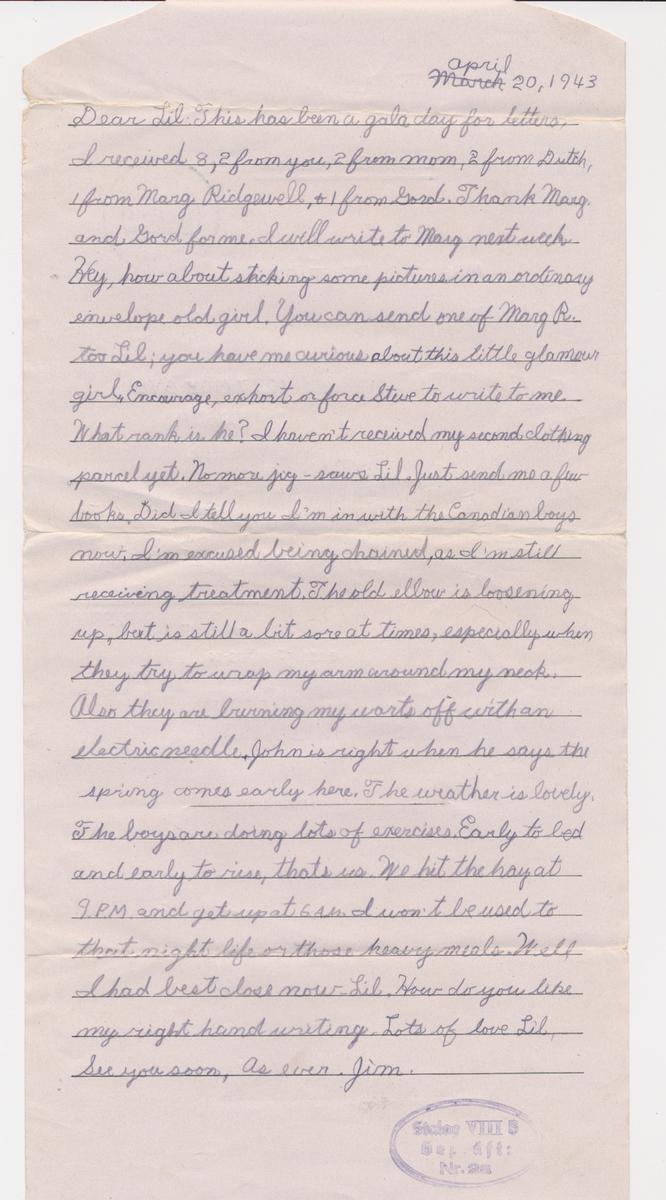 april
March 20, 1943
Dear Lil: This has been a gala day for letters.
I received 8, 2 from you, 2 from mom, 2 from Dutch,
1 from Marg Ridgewell, + 1 from Gord. Thank Marg.
and Gord for me. I will write to Marg next week
Hey, how about sticking some pictures in an ordinary
envelope old girl. You can send one of Marg R.
too Lil; you have me curious about this little glamour
girl. Encourage, exhort or force Steve to write to me.
What rank is he? I haven't received my second clothing
parcel yet. No more jig-saws Lil. Just send me a few
books. Did I tell you I'm in with the Canadian boys
now. I'm excused being chained, as I'm still
receiving treatment. The old elbow is loosening
up, but is still a bit sore at times, especially when
they try to wrap my arm around my neck.
Also they are burning my warts off with an
electric needle. John is right when he says the
spring comes early here. The weather is lovely.
The boys are doing lots of exercises. Early to bed
and early to rise, thats us. We hit the hay at
9 P.M. and get up at 6 A.M. I won't be used to
that night life or those heavy meals. Well
I had best close now Lil. How do you like
my right hand writing. Lots of love Lil,
See you soon, As ever. Jim.
Stalag VIII B
Geprüft:
Nr.